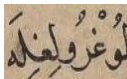 لُوغْرُولِغِلَه